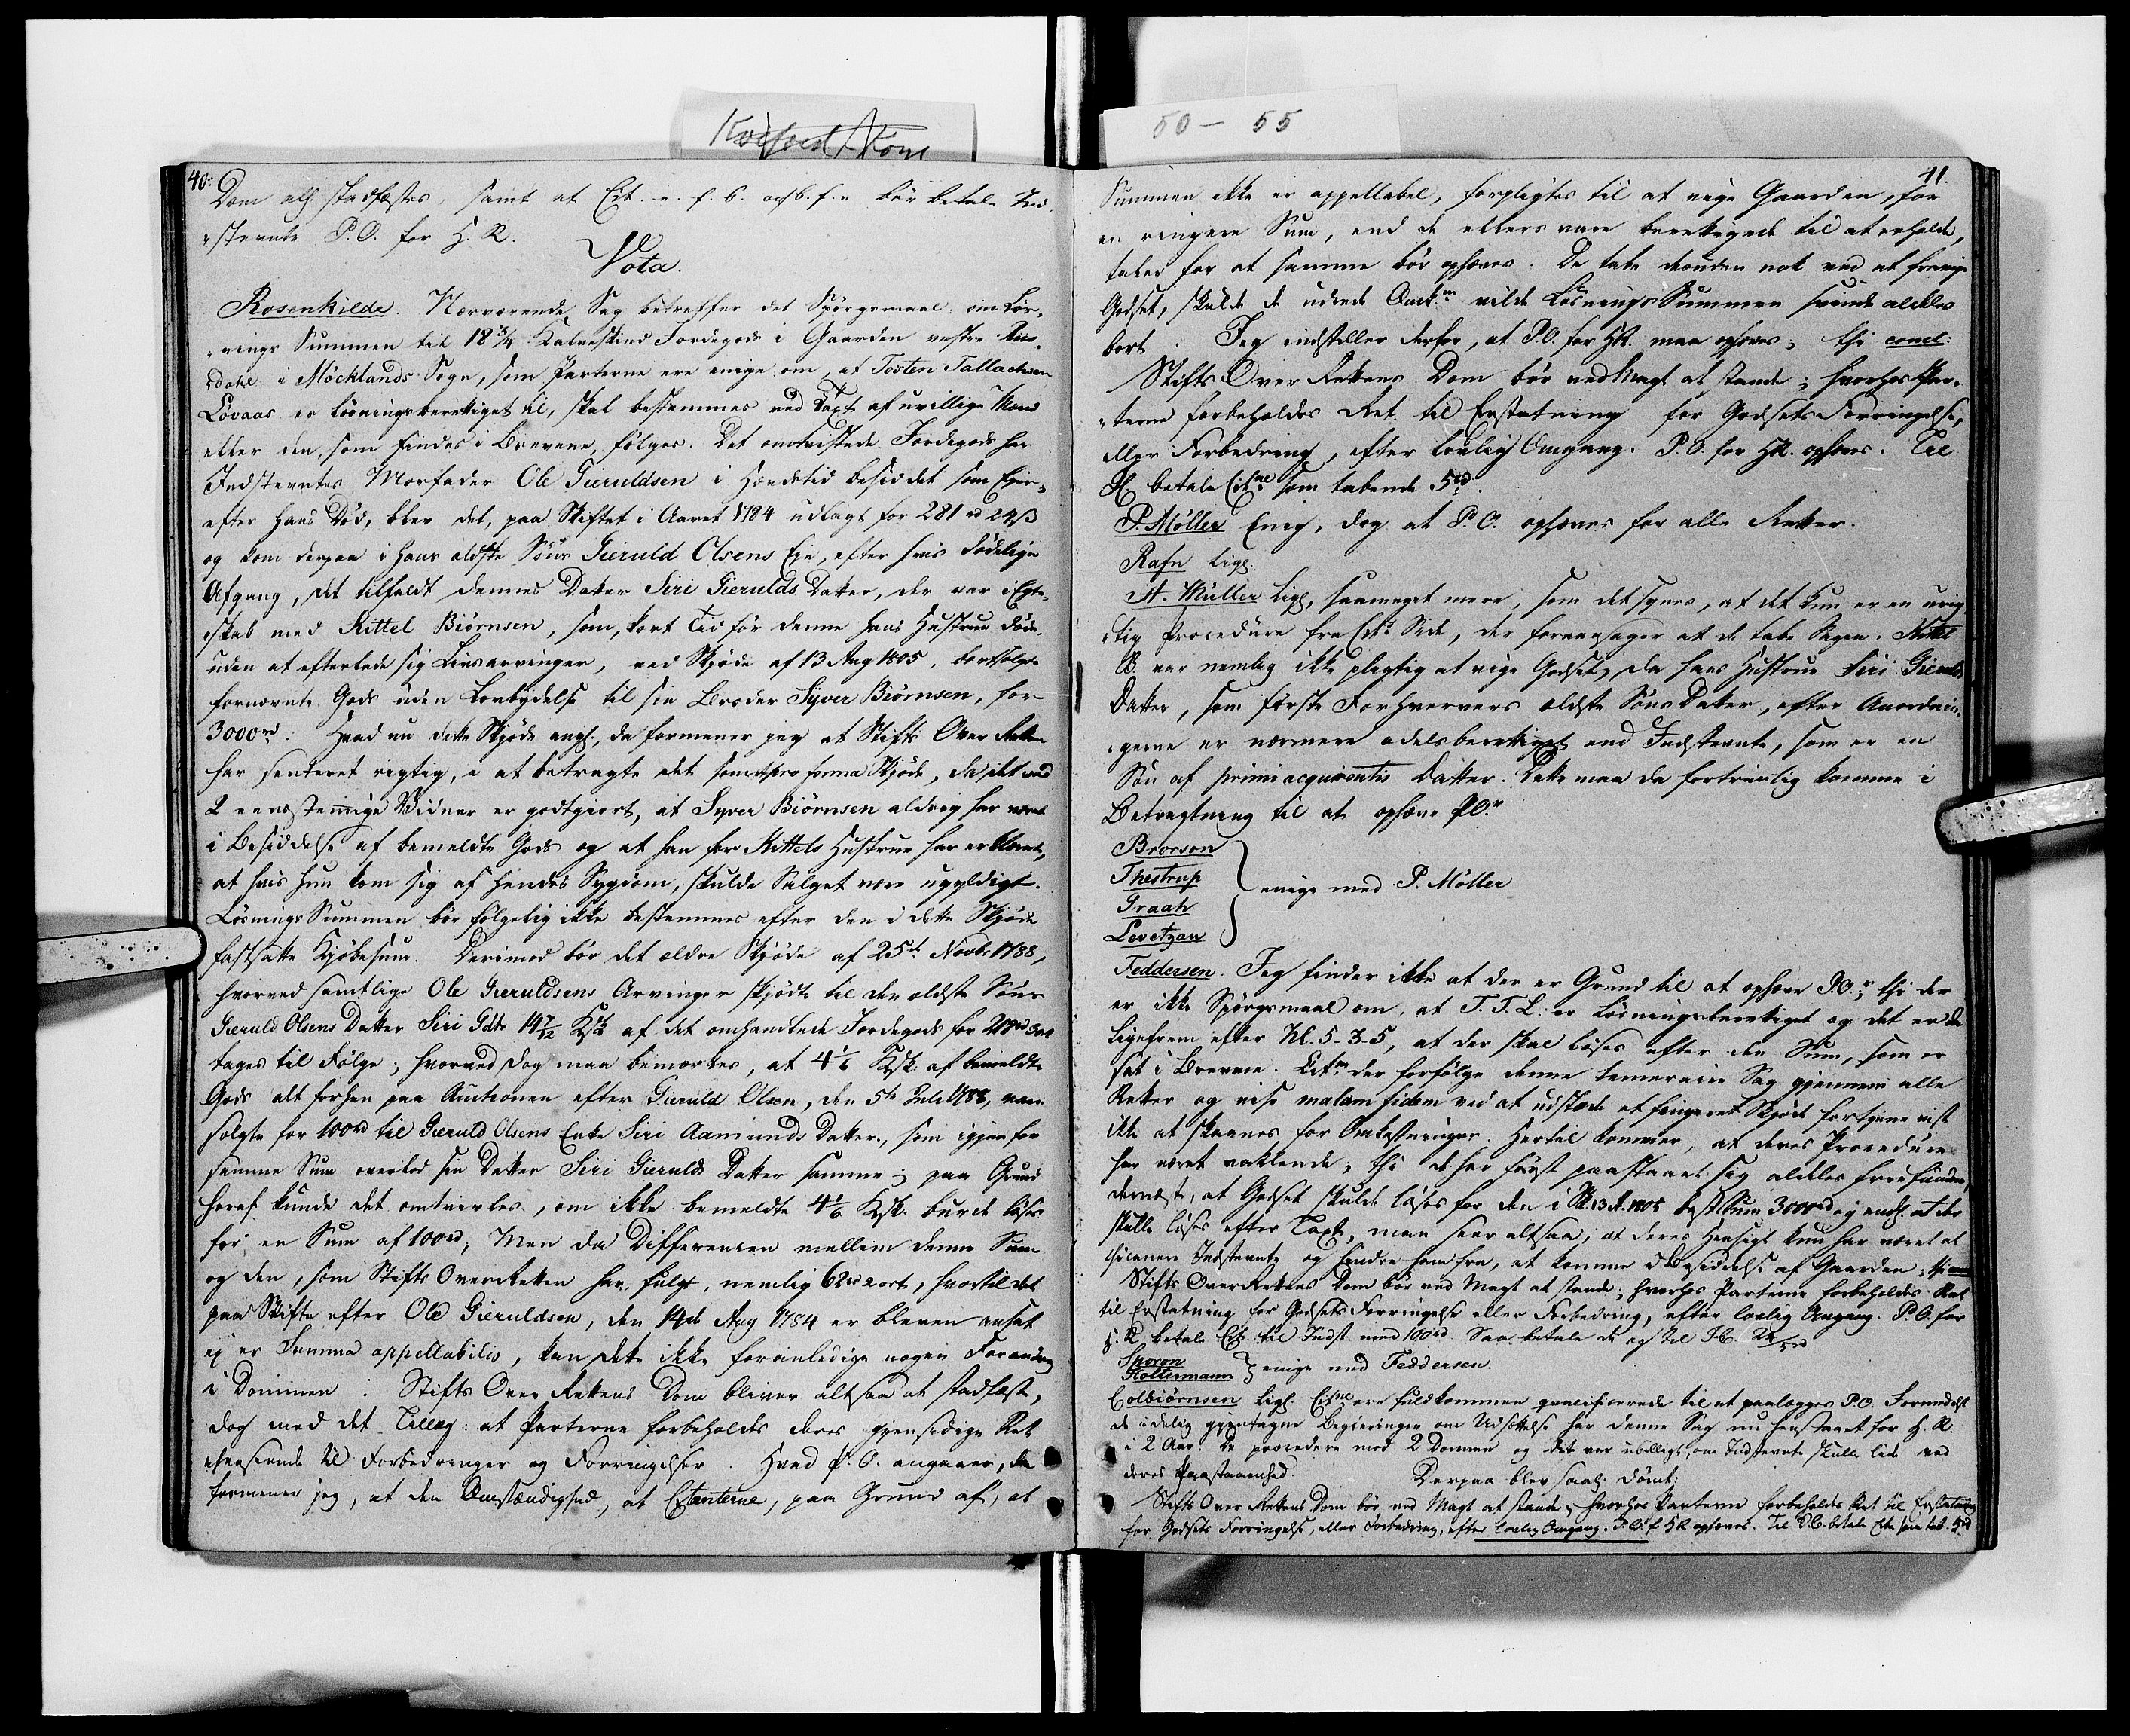 Kvisted / Kom
50 - 55
40.
Dom alf. stadfæstes, samt at Cit. e. f. b. og b. f. e bör betale Ind-
stevnte P.O. for H.R.
Vota.
Rosenkilde. Nærværende Sag betreffer det Spörgsmaal: om Lös-
nings Summen til 18 3/4 Kalveskind Jordegods i Gaarden vestre
dahl i Möcklands Sogn, som Parterne ere enige om, at Tosten Tallachsen
Lövaas er lösningsberettiget til, skal bestemmes ved Taxt af uvillige Mænd
eller den, som findes i Brevene, fölges. Det omtvistede Jordegods har
Indstevntes Morfader Ole Gieruldsen i Hændetid besiddet som Ejer,
efter hans Död, blev det, paa Skiftet i Aaret 1784 udlagt for 281 rd 24 ß
og kom derpaa i hans ældste Söns Gieruld Olsens Eje, efter hvis dödelige
Afgang, det tilfaldt dennes Datter Siri Gierulds Datter, der var i Egte-
skab med Kittel Biörnsen, som, kort Tid för denne hans Hustrue döde,
uden at efterlade sig Livsarvinger, ved Skjöde af 13 Aug 1805, bortsolgte
fornævnte Gods uden Lovbydelse til sin Broder Syver Biörnsen, for
3000 rd. Hvad nu dette Skjöde angl., da formener jeg at Stifts Over Retten
har senteret rigtig, i at betragte det som et pro forma Skjöde, da det ved
2 eenstemmige Vidner er godtgiort, at Syver Biörnsen aldrig har været
i Besiddelse af bemeldte Gods og at han for Kittels Hustrue har erklæret,
at hvis hun kom sig af hendes Sygdom, skulde Salget være ugyldigt.
Lösnings Summen bör fölgelig ikke bestemmes efter den i dette Skjöde
fastsatte Kjöbesum. Derimod bör det ældre Skjöde af 25de Novbr 1788,
hvorved samtlige Ole Gieruldsens Arvinger skjödte til den ældste Söns
Gieruld Olsens Datter Siri Gdtr 14 7/12 Ksk af det omhandlede Jordegods for
tages til Fölge; hvorved dog maa bemærkes, at 4 1/6 Ksk af bemeldte
Gods alt forhen paa Auctionen efter Gieruld Olsen, den 5te Juli 1788, vare
solgte for 100 rd til Gieruld Olsens Enke Siri Aamunds Datter, som igjen for
samme Sum overlod sin Datter Siri Gierulds Datter samme; paa Grund
heraf kunde det omtvivles, om ikke bemeldte 4 1/6 Ksk. burde löses
for en Sum af 100 rd; Men da Differencen mellem denne Sum
og den, som Stifts Over Retten har fulgt, nemlig 62 rd 2 ort, hvortil det
paa Skifte efter Ole Gieruldsen, den 14de Aug 1784 er bleven ansat
ej er Summa appellabilis, kan dette ikke foranledige nogen Forandring
i Dommen. Stifts Over Rettens Dom bliver altsaa at stadfæste,
dog med det Tillæg: at Parterne forbeholdes deres gjensidige Ret
henseende til Forbedringer og Forringelser. Hvad P.O. angaaer, da
formener jeg, at den Omstændighed, at Citanterne, paa Grund af, at
41.
Summen ikke er appellabel, forpligtes til at vige Gaarden, for
en ringere Sum, end de ellers vare berettigede til at erholde,
taler for at samme bör ophæves. De tabe desuden nok ved at fravige
Godset, skulde de udrede Omk.ne vilde Lösnings Summen svinde aldeles
bort. Jeg indstiller derfor, at P.O. for HR. maa ophæves; thi concl:
Stifts Over Rettens Dom bör ved Magt at stande; hvorhos Par-
terne forbeholdes Ret til Erstatning for Godsets Forringelse,
eller Forbedring, efter lovlig Omgang. P.O. for HR. ophæves. Til
betale Cit.ne som tabende 5 rd.
P. Möller Enig, dog at P.O. ophæves for alle Retter.
Rafn Ligl.
A. Müller Ligl, saameget mere, som det synes, at det kun er en urig-
tig Procedure fra Cit.s Side, der foraarsager at de tabe Sagen. Kittel
B. var nemlig ikke pligtig at vige Godset, da hans Hustrue Siri Gierulds
Datter, som förste Forhververs ældste Söns Datter, efter Anordnin-
gerne er nærmere odelsberettiget end Indstevnte, som er en
Sön af primi acquirentis Datter. Dette maa da fortrinlig komme i
Betragtning til at ophæve P.O.
Brorson
Thestrup
Traah
Levetzau
enige med P. Möller
Feddersen. Jeg finder ikke at der er Grund til at ophæve P.O.; thi der
er ikke Spörgsmaal om, at T.T.L. er lösningsberettiget og det er da
ligefrem efter Nl. 5-3-5, at der skal löses efter den Sum, som er
sat i Brevene. Cit.ne der forfölge denne temeraire Sag gjennem alle
Retter og vise malam fidem ved at udstæde et fingeret Skjöde fortjene vist
ikke at skaanes for Omkostninger. Hertil kommer, at deres Procedure
har været vaklende; thi de har först paastaaet sig aldeles friefunden,
dernæst, at Godset skulde löses for den i Sk. 13 A. 1805 bestte Sum 3000 rd og endl. at det
skulle löses efter Taxt, man seer altsaa, at deres Hensigt kun har været at
chicanere Indstevnte og hindre ham fra, at komme i Besiddelse af Gaarden; thi
Stifts Over Rettens Dom bör ved Magt at stande; hvorhos Parterne forbeholdes Ret
til Erstatning for Godsets Forringelse eller Forbedring, efter lovlig Omgang. P.O. for
H.R. betale Cit. til Indst. med 100 rd. Saa betale de og til J.C. 5 rd
Sporon
Haltermann
enige med Feddersen.
Colbiörnsen Ligl. Cit.ne ere fuldkommen qvalificerede til at paalægges P.O. Formedelst
de idelig gjentagne Begjeringer om Udsættelse har denne Sag nu henstaaet for H.R.
i 2 Aar. De procedere mod 2 Domme og det var ubilligt, om Indstevnte skulle lide ved
deres Paastaaenhed. Derpaa blev saal. dömt:
Stifts Over Rettens Dom bör ved Magt at stande; hvorhos Parterne forbeholdes Ret til Erstatning
for Godsets Forringelse, eller Forbedring, efter lovlig Omgang. P.O. f. HR ophæves. Til J.C. betale Cit.ne som tab. 5 rd